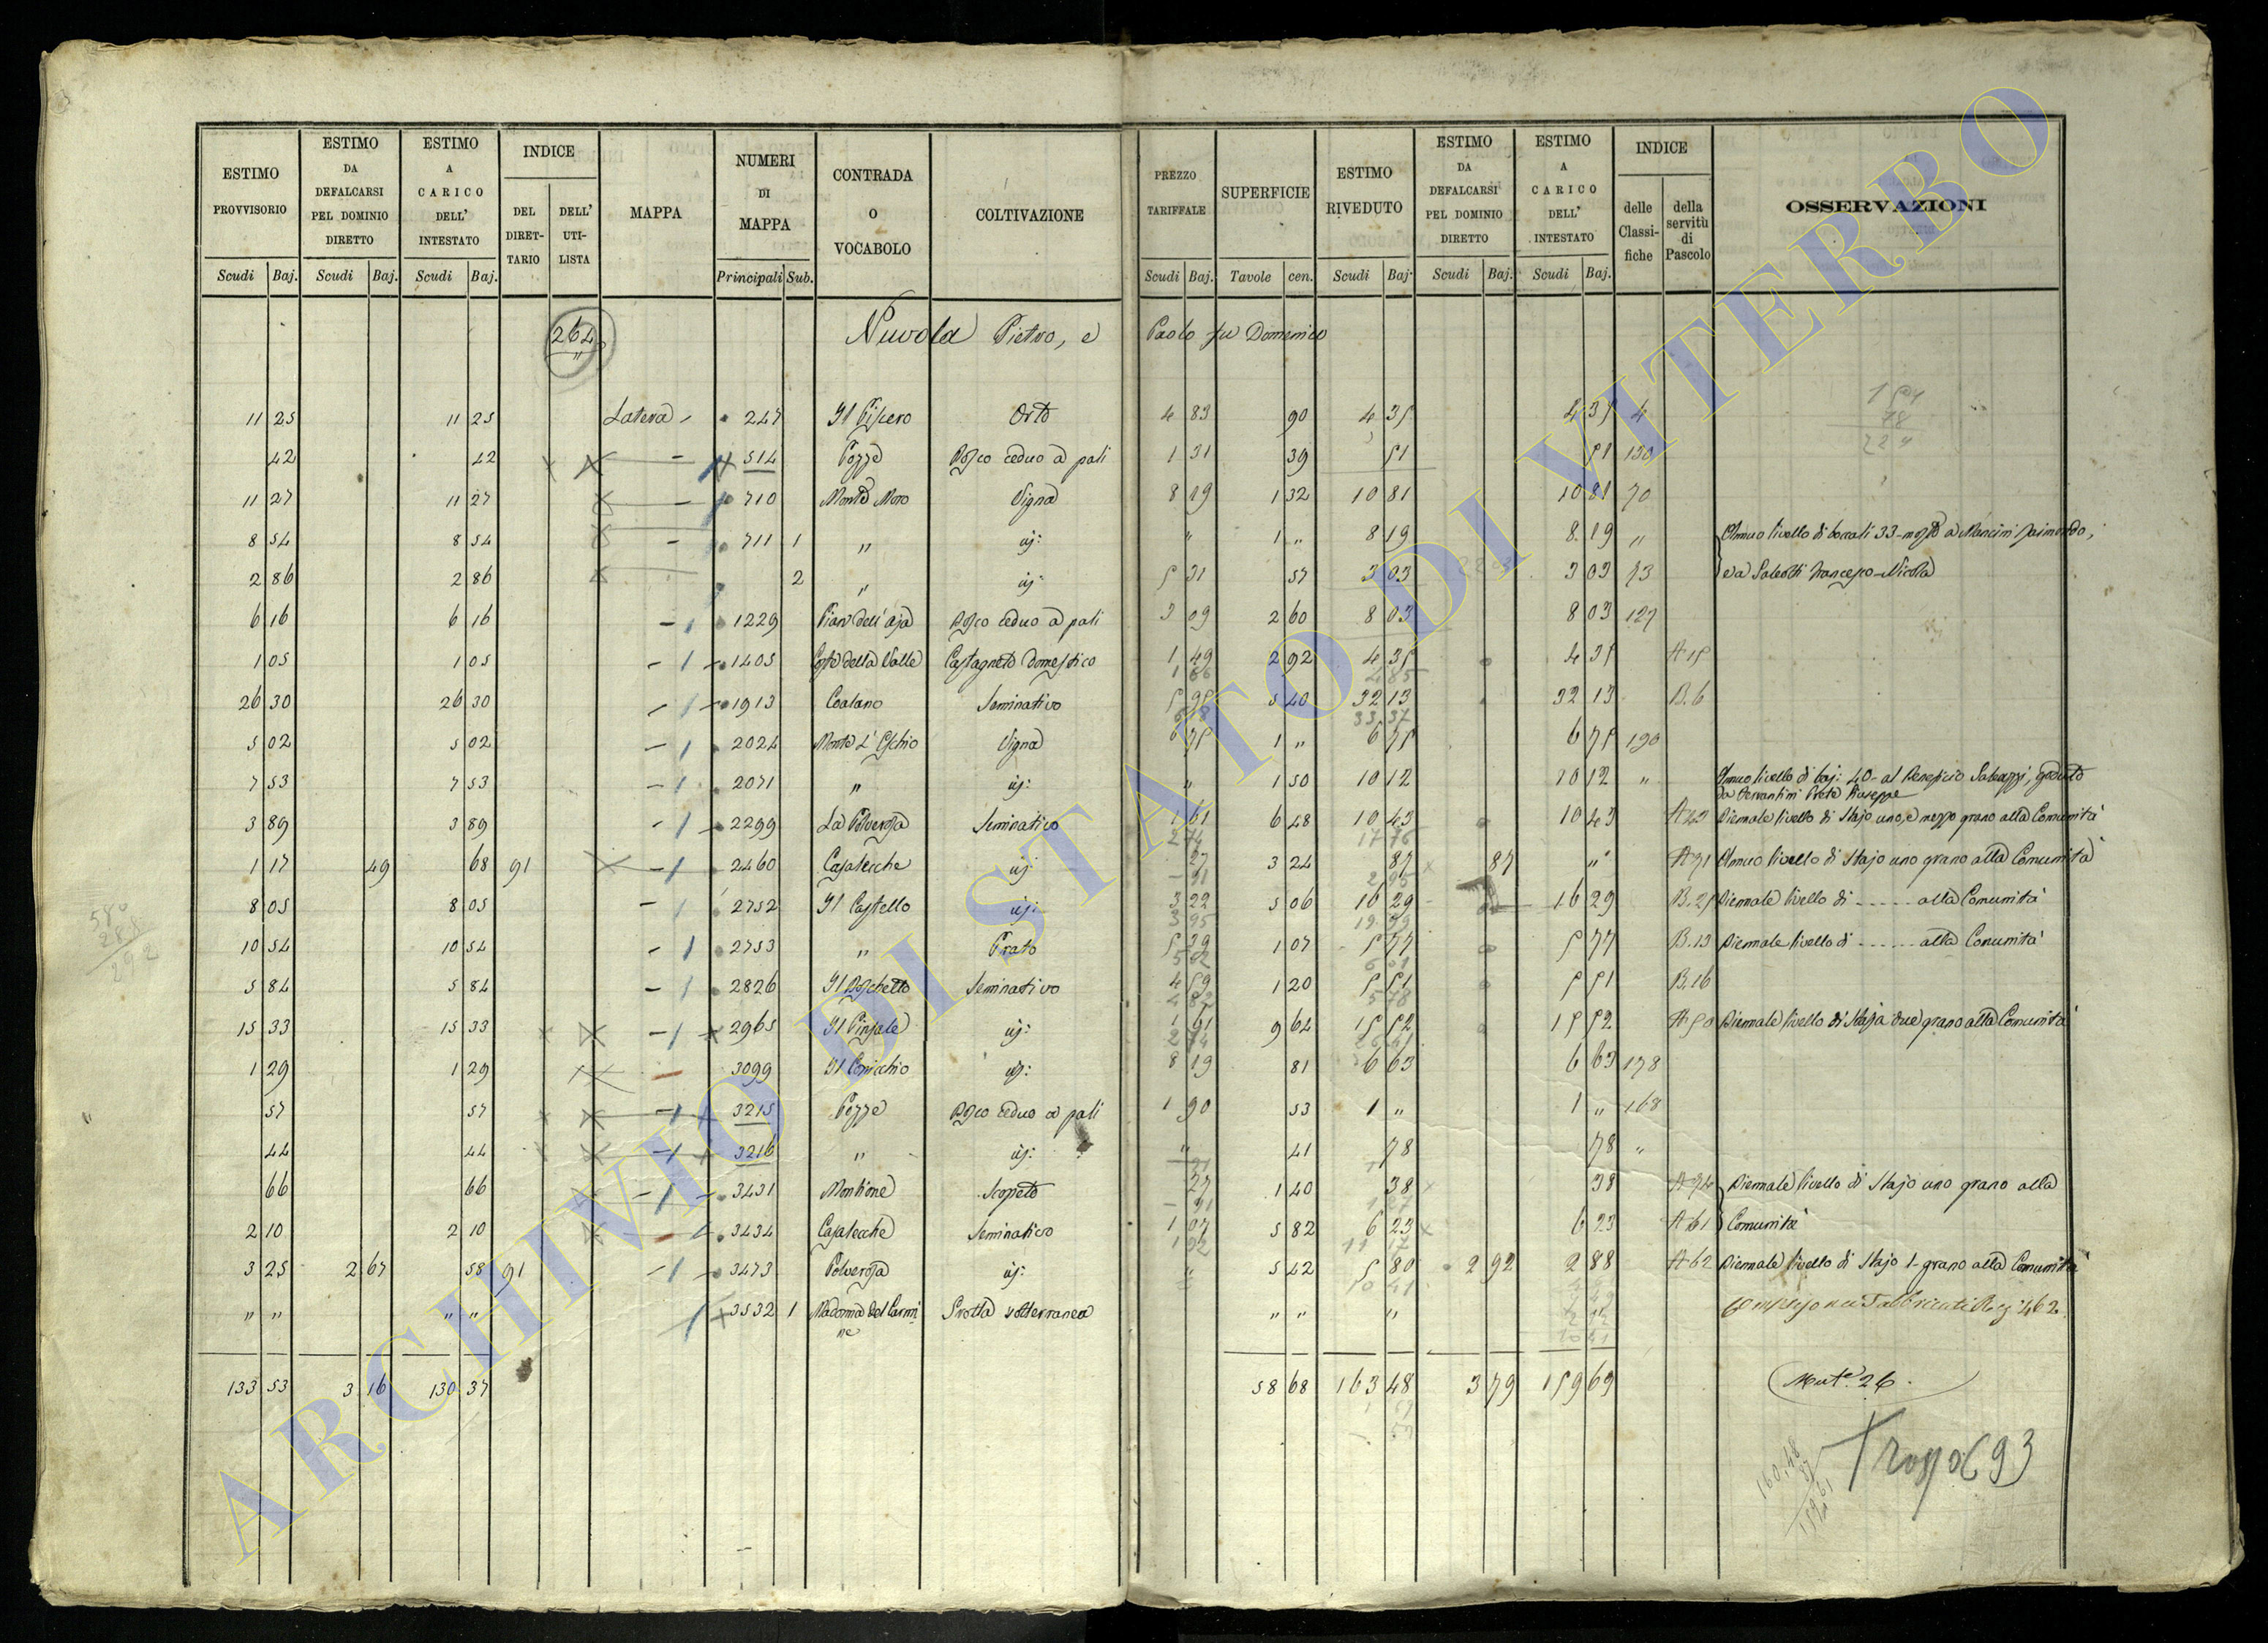 ESTIMO PROVVISORIO | ESTIMO DA DEFALCARSI PEL DOMINIO DIRETTO | ESTIMO A CARICO DELL' INTESTATO | INDICE | MAPPA | NUMERI DI MAPPA | CONTRADA O VOCABOLO | COLTIVAZIONE | PREZZO TARIFFALE | SUPERFICIE | ESTIMO RIVEDUTO | ESTIMO DA DEFALCARSI PEL DOMINIO DIRETTO | ESTIMO A CARICO DELL' INTESTATO | INDICE | OSSERVAZIONI
DEL DIRET-TARIO | DELL' UTI-LISTA | delle Classi-fiche | della servitù di Pascolo
Scudi | Baj. | Scudi | Baj. | Scudi | Baj. | Principali | Sub. | Scudi | Baj. | Tavole | cen. | Scudi | Baj. | Scudi | Baj. | Scudi | Baj.
264 Nuvola Pietro, e Paolo fu Domenico
11 25 | 11 25 | Latera | 247 | Il Piscero | Orto | 4 83 | 90 | 4 35 | 4 35 | 4
42 | 42 | 514 | Pozze | Bosco ceduo a pali | 1 31 | 39 | 51 | 51 | 130
11 27 | 11 27 | 710 | Monte Moro | Vigna | 8 19 | 1 32 | 10 81 | 10 81 | 70
8 54 | 8 54 | 711 | 1 | " | id: | " | 1 " | 8 19 | 8 19 | " | Annuo livello di boccali 33 mosto a Mancini Raimondo,
2 86 | 2 86 | 2 | " | id: | 5 31 | 57 | 3 03 | 3 03 | 73 | e a Francesco Nicola
6 16 | 6 16 | 1229 | Piano dell' Aja | Bosco ceduo a pali | 3 09 | 2 60 | 8 03 | 8 03 | 127
1 05 | 1 05 | 1405 | Costa della Valle | Castagneto domestico | 1 49 | 2 92 | 4 35 | 4 35 | A 15
26 30 | 26 30 | 1913 | Coalano | Seminativo | 5 95 | 5 40 | 32 13 | 32 13 | B. 6
5 02 | 5 02 | 2024 | Monte L' Eschio | Vigna | 6 75 | 1 " | 6 75 | 6 75 | 190
7 53 | 7 53 | 2071 | " | id: | " | 1 50 | 10 12 | 10 12 | " | Annuo livello di baj: 40 al Beneficio goduto
da Prete Giuseppe
3 89 | 3 89 | 2299 | La Polverosa | Seminativo | 1 61 | 6 48 | 10 43 | 10 43 | A 43 | Biennale livello di Stajo uno, e mezzo grano alla Comunità
1 17 | 49 | 68 | 91 | 2460 | Casalecche | id: | 27 | 3 24 | 87 | 87 | " | A 71 | Annuo livello di Stajo uno grano alla Comunità
8 05 | 8 05 | 2752 | Il Castello | id: | 3 22 | 5 06 | 16 29 | 16 29 | B. 25 | Biennale livello di ...... alla Comunità
10 54 | 10 54 | 2753 | " | Prato | 5 39 | 1 07 | 5 77 | 5 77 | B. 13 | Biennale livello di ...... alla Comunità
5 84 | 5 84 | 2826 | Il Boschetto | Seminativo | 4 59 | 1 20 | 5 51 | 5 51 | B. 16
15 33 | 15 33 | 2965 | Il Pinzale | id: | 1 61 | 9 64 | 15 52 | 15 52 | A 50 | Biennale livello di Staja due grano alla Comunità
1 29 | 1 29 | 3099 | id: | 8 19 | 81 | 6 63 | 6 63 | 178
57 | 57 | 3215 | Pozze | Bosco ceduo a pali | 1 90 | 53 | 1 " | 1 " | 168
44 | 44 | 3216 | " | id: | " | 41 | 78 | 78 | "
66 | 66 | 3431 | Montione | Scopeto | 27 | 1 40 | 38 | 38 | A 74 | Biennale livello di Stajo uno grano alla
2 10 | 2 10 | 3434 | Casalecche | Seminativo | 1 07 | 5 82 | 6 23 | 6 23 | A 61 | Comunità
3 25 | 2 67 | 58 | 91 | 3473 | Polverosa | id: | " | 5 42 | 5 80 | 2 92 | 2 88 | A 62 | Biennale livello di Stajo 1 grano alla Comunità
" " | " " | 3532 | 1 | Madonna del Carmine | Grotta sotterranea | " " | " | Compreso nei Fabbricati Reg: 462
133 53 | 3 16 | 130 37 | 58 68 | 163 48 | 3 79 | 159 69 | Mut.e 26.
693
ARCHIVIO DI STATO DI VITERBO